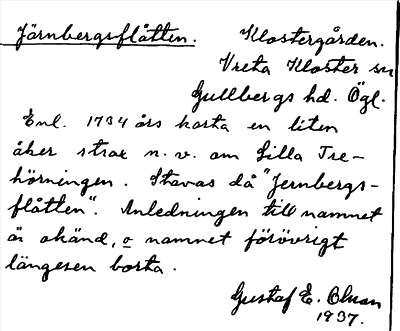 Järnbergsflåtten. Klostergården.
Vreta Kloster sn
Gullbergs hd. Ögl.
Enl. 1734 års karta en liten
åker strax n.v. om Lilla Tre-
hörningen. Stavas då "Jernbergs-
flåtten". Anledningen till namnet
är okänd, o namnet förövrigt
längesen borta.
Gustaf E. Olsson
1937.